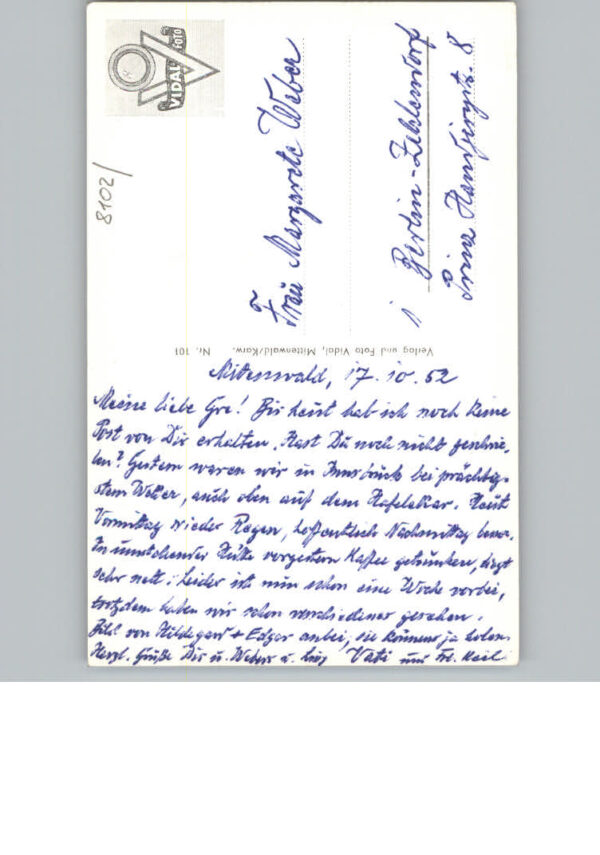 VIDAL FOTO
8102/
Frau Margarete Weber
Berlin-Zehlendorf
Prinz Handjerystr. 8
Verlag und Foto Vidal, Mittenwald/Karw. Nr. 101
Mittenwald, 17.10.52
Meine liebe Gre! Bis heut hab ich noch keine
Post von Dir erhalten. Hast Du noch nicht geschrie-
ben? Gestern waren wir in Innsbruck bei prächtig-
stem Wetter, auch oben auf dem Hafelekar. Heut
Vormittag wieder Regen, hoffentlich Nachmittag besser.
In umstehender Hütte vorgestern Kaffee getrunken, liegt
sehr nett. Leider ist nun schon eine Woche vorbei,
trotzdem haben wir schon verschiedenes gesehen.
Bild von Hildegard + Edgar anbei, sie können ja
Herzl. Grüße Dir u. Webers u. Vati und Frl. Keil